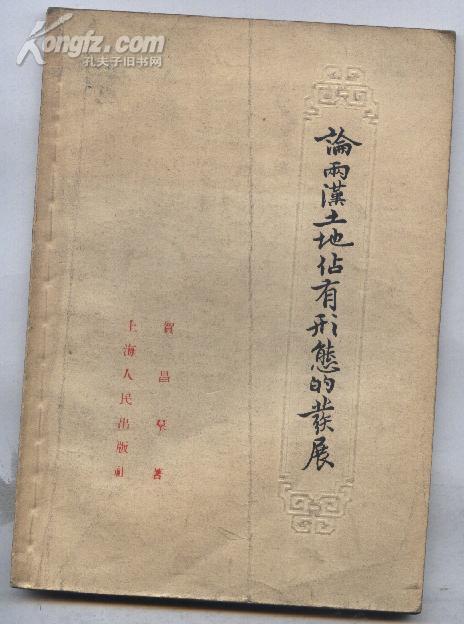 Kongfz.com
孔夫子旧书网
論兩漢土地佔有形態的發展
賀昌羣著
上海人民出版社